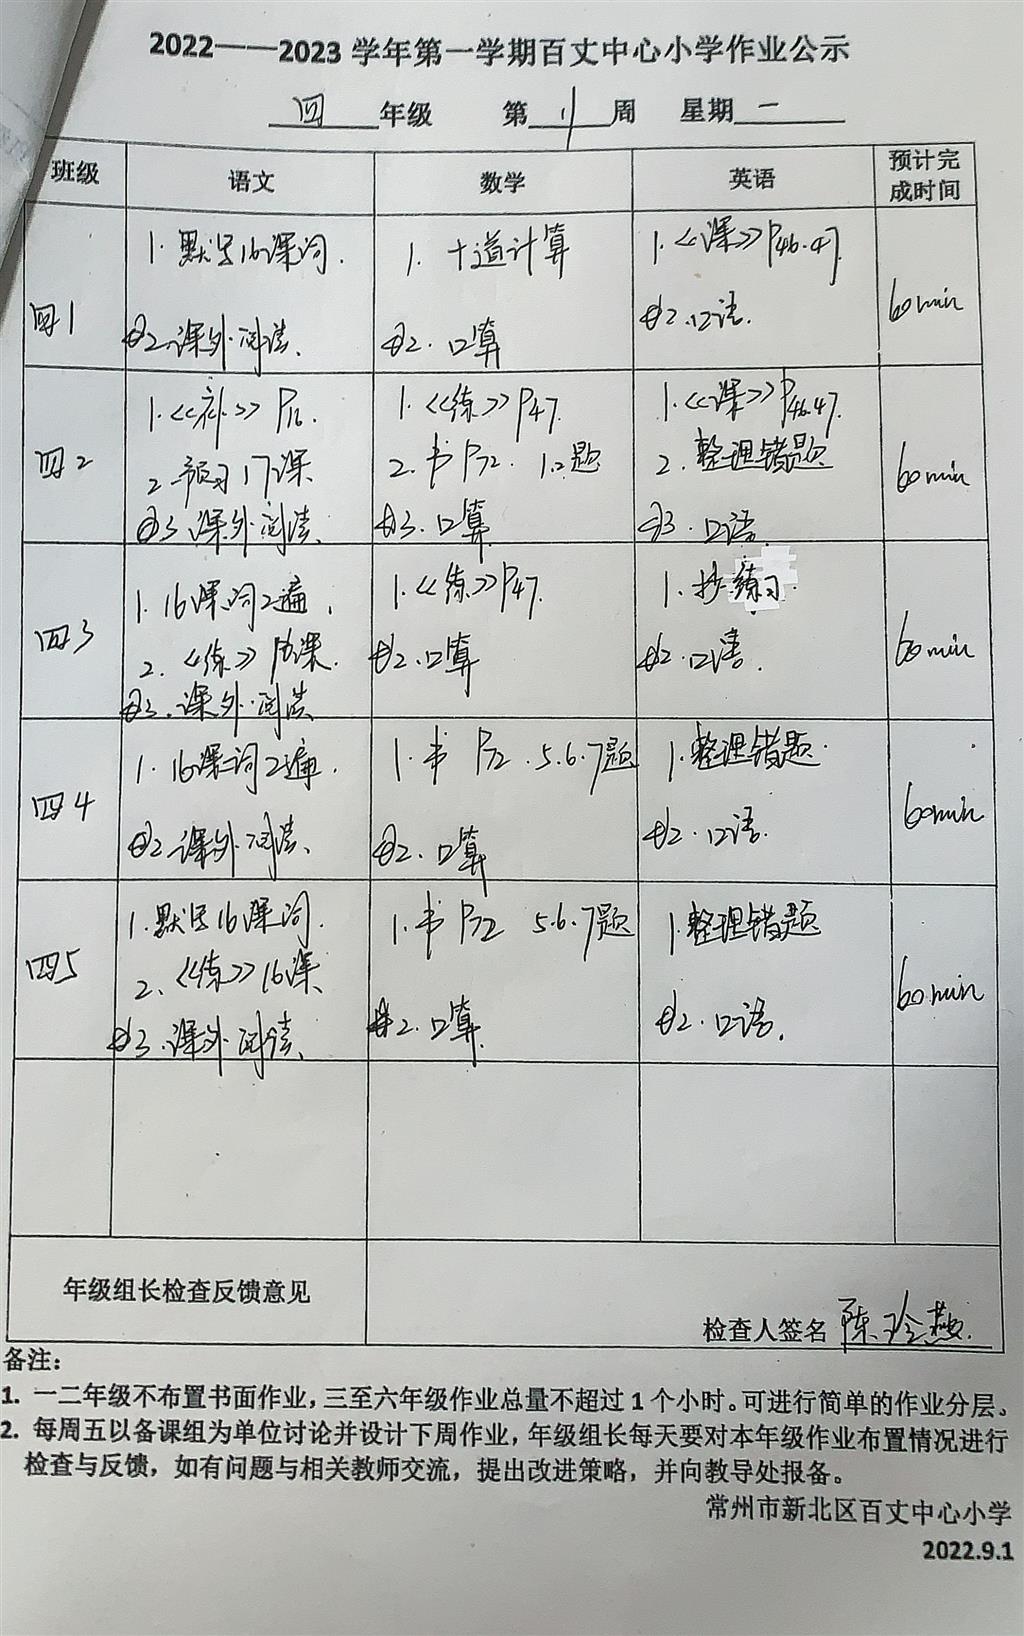 2022——2023 学年第一学期百丈中心小学作业公示
四 年级 第 11 周 星期 二
班级 语文 数学 英语 预计完成时间
四1
1. 默写16课词.
2. 课外阅读.
1. 十道计算
2. 口算
1. 《课》P46.47.
2. 口语.
60min
四2
1. 《补》P16.
2. 预习17课
3. 课外阅读.
1. 《练》P47.
2. 书P72. 1.2题
3. 口算
1. 《课》P46.47.
2. 整理错题
3. 口语.
60min
四3
1. 16课词2遍.
2. 《练》课.
3. 课外阅读
1. 《练》P47.
2. 口算
1. 抄练习
2. 口语.
60min
四4
1. 16课词2遍.
2. 课外阅读.
1. 书 P72. 5.6.7题
2. 口算
1. 整理错题.
2. 口语.
60min
四5
1. 默写16课词.
2. 《练》16课.
3. 课外阅读.
1. 书 P72 5.6.7题
2. 口算.
1. 整理错题
2. 口语.
60min
年级组长检查反馈意见
检查人签名 陈玲燕
备注：
1. 一二年级不布置书面作业，三至六年级作业总量不超过 1 个小时。可进行简单的作业分层。
2. 每周五以备课组为单位讨论并设计下周作业，年级组长每天要对本年级作业布置情况进行
检查与反馈，如有问题与相关教师交流，提出改进策略，并向教导处报备。
常州市新北区百丈中心小学
2022.9.1